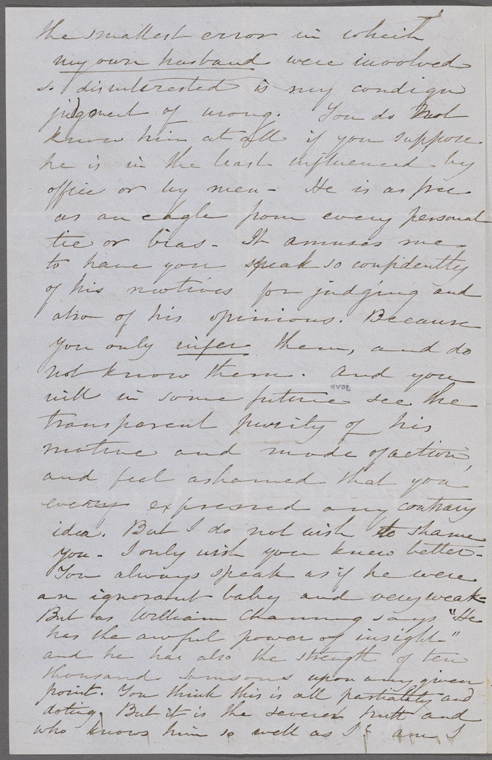 the smallest error in which
my own husband were involved
so disinterested is my condign
judgment of wrong. You do not
know him at all if you suppose
he is in the least influenced by
office or by men - He is as free
as an eagle from every personal
tie or bias - It amuses me
to have you speak so confidently
of his motives for judging and
also of his opinions. Because
you only infer them, and do
not know them. And you
will in some future see the
transparent purity of his
motive and mode of action,
and feel ashamed that you
ever expressed any contrary
idea. But I do not wish to shame
you - I only wish you knew better -
You always speak as if he were
an ignorant baby and very weak -
But as William Channing says "He
has the awful power of insight"
and he has also the strength of ten
thousand Samsons upon any given
point. You think this is all partiality and
doting. But it is the severe truth and
who knows him so well as I? am I